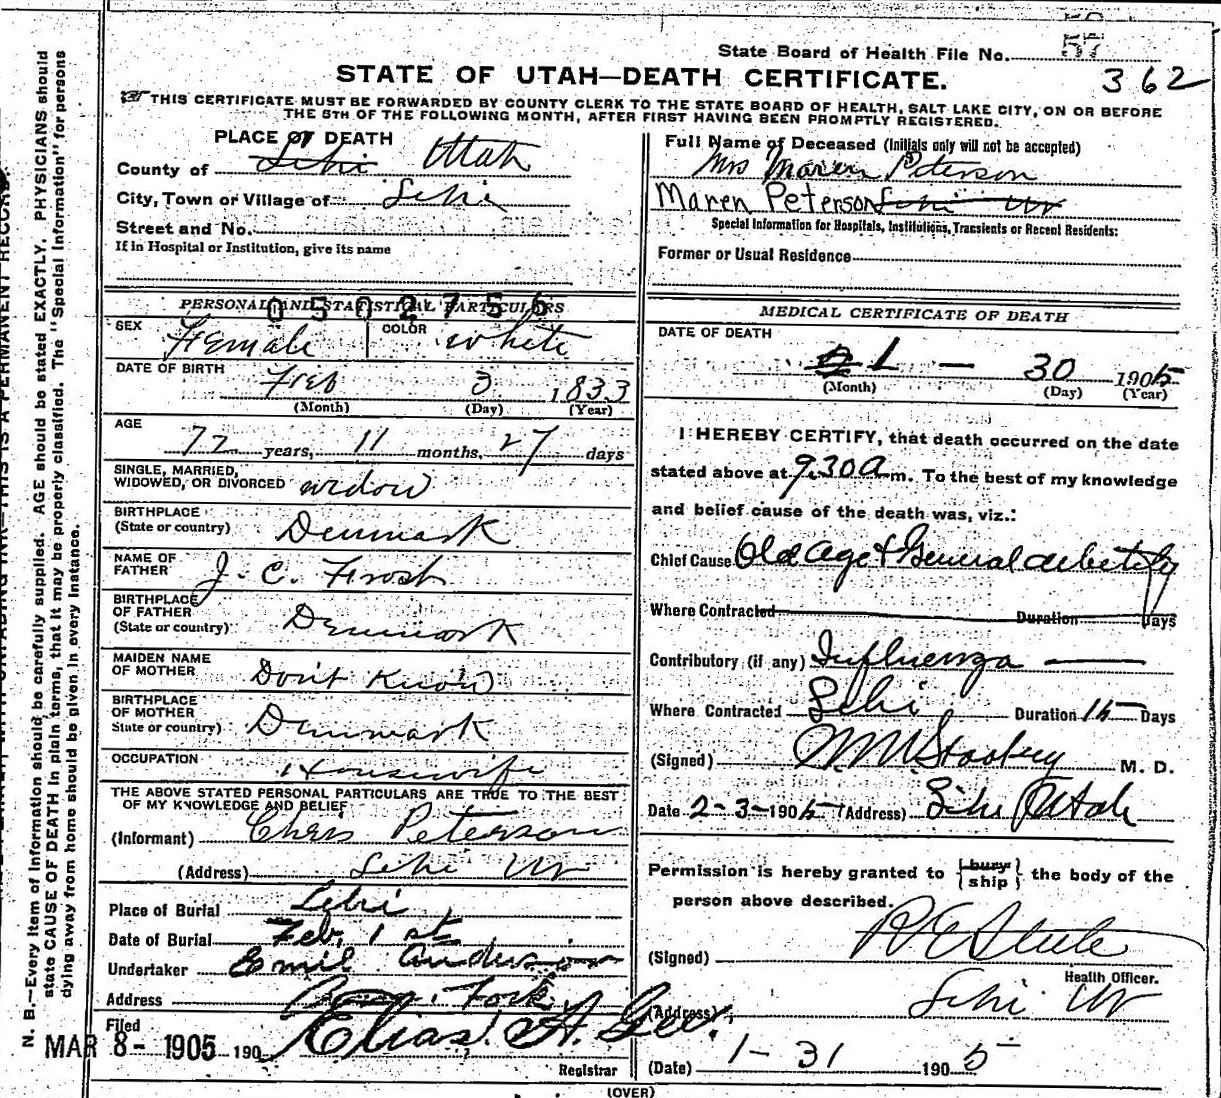 State Board of Health File No. 57
362
STATE OF UTAH—DEATH CERTIFICATE.
THIS CERTIFICATE MUST BE FORWARDED BY COUNTY CLERK TO THE STATE BOARD OF HEALTH, SALT LAKE CITY, ON OR BEFORE
THE 5TH OF THE FOLLOWING MONTH, AFTER FIRST HAVING BEEN PROMPTLY REGISTERED.
PLACE OF DEATH
County of Lehi Utah
City, Town or Village of Lehi
Street and No.
If in Hospital or Institution, give its name
PERSONAL AND STATISTICAL PARTICULARS
0502756
SEX Female COLOR white
DATE OF BIRTH Feb 3 1833
(Month) (Day) (Year)
AGE
72 years, 11 months, 27 days
SINGLE, MARRIED,
WIDOWED, OR DIVORCED widow
BIRTHPLACE
(State or country) Denmark
NAME OF
FATHER J. C. Frost
BIRTHPLACE
OF FATHER
(State or country) Denmark
MAIDEN NAME
OF MOTHER Dont Know
BIRTHPLACE
OF MOTHER
State or country) Denmark
OCCUPATION Housewife
THE ABOVE STATED PERSONAL PARTICULARS ARE TRUE TO THE BEST
OF MY KNOWLEDGE AND BELIEF
(Informant) Chris Peterson
(Address) Lehi Ut
Place of Burial Lehi
Date of Burial Feb, 1 st
Undertaker Emil Anderson
Address Amer. Fork
Filed
MAR 8- 1905 190 Elias A. Gee.
Registrar
Full Name of Deceased (Initials only will not be accepted)
Mrs Maren Peterson
Maren Peterson Lehi Ut
Special Information for Hospitals, Institutions, Transients or Recent Residents:
Former or Usual Residence
MEDICAL CERTIFICATE OF DEATH
DATE OF DEATH
1 - 30 1905
(Month) (Day) (Year)
I HEREBY CERTIFY, that death occurred on the date
stated above at 9.30 a m. To the best of my knowledge
and belief cause of the death was, viz.:
Chief Cause Old age & General debetity
Where Contracted Duration Days
Contributory (if any) Influenza
Where Contracted Lehi Duration 15 Days
(Signed) Stookey M. D.
Date 2-3-1905 (Address) Lehi Utah
Permission is hereby granted to {bury ship} the body of the
person above described.
(Signed) R E Steele
Health Officer.
(Address) Lehi Ut
(Date) 1-31 1905
(OVER)
N. B.—Every item of information should be carefully supplied. AGE should be stated EXACTLY. PHYSICIANS should
state CAUSE OF DEATH in plain terms, that it may be properly classified. The "Special Information" for persons
dying away from home should be given in every instance.
THIS IS A PERMANENT RECORD.